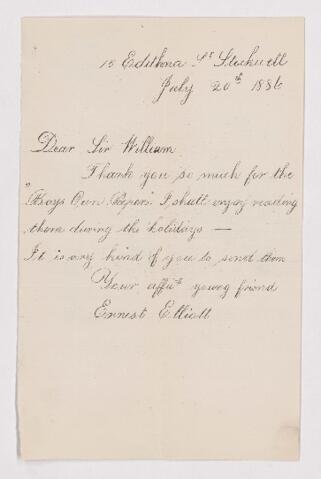 15 Edithna St Stockwell
July 20th 1886
Dear Sir William
Thank you so much for the
"Boys Own Paper. I shall enjoy reading
them during the holidays —
It is very kind of you to send them
Your affte young friend
Ernest Elliott